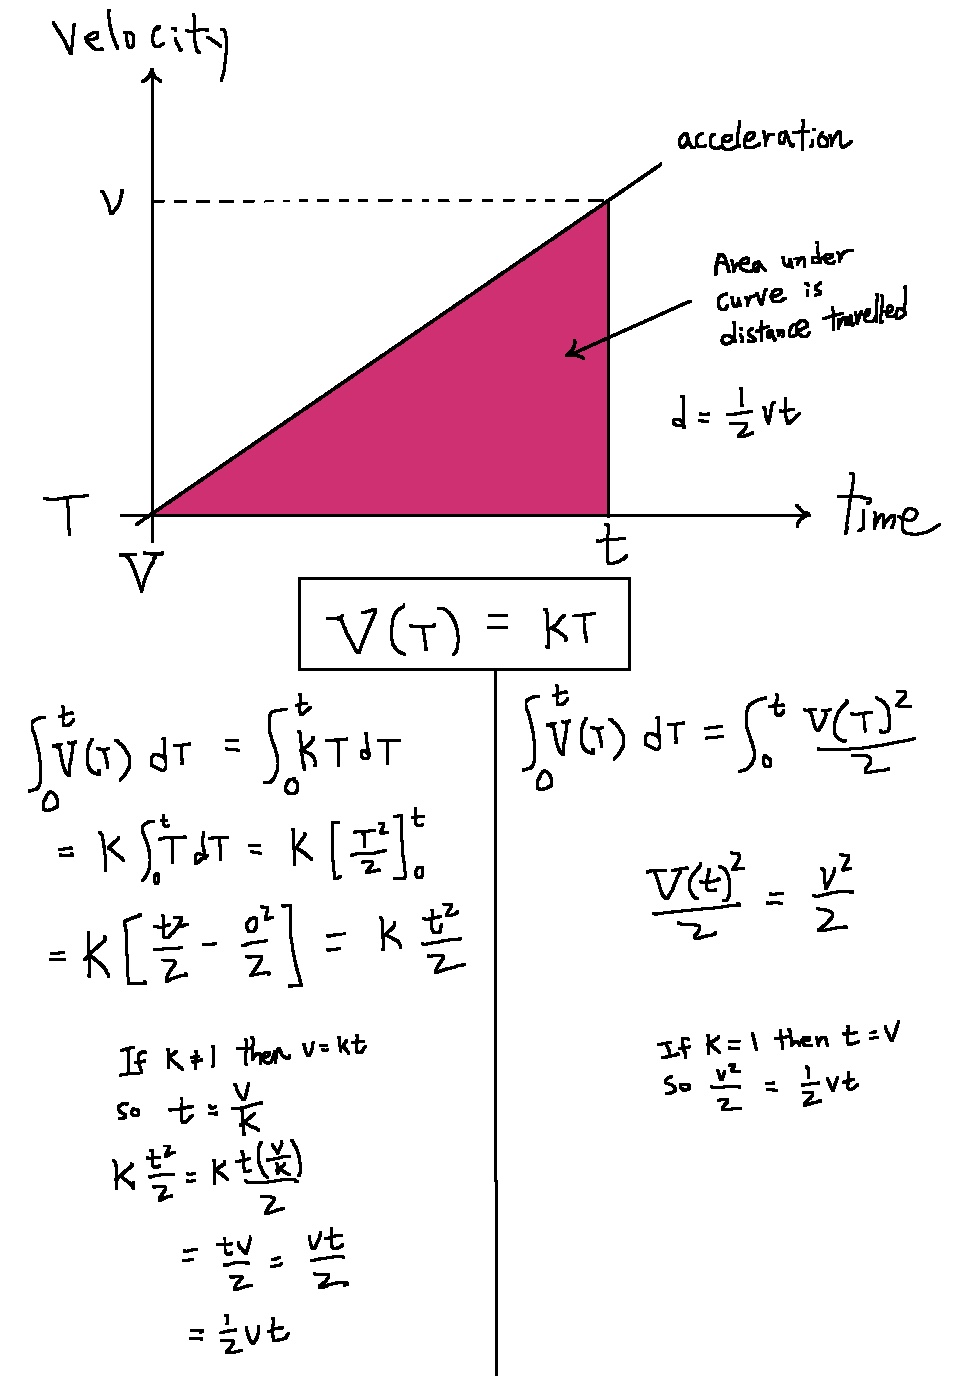 Velocity
acceleration
v
Area under
curve is
distance travelled
d = 1/2 vt
T
time
V
t
V(T) = KT
∫₀ᵗ V(T) dT = ∫₀ᵗ KT dT
= K ∫₀ᵗ T dT = K [T²/2]₀ᵗ
= K [t²/2 - 0²/2] = K t²/2
If K≠1 then v=kt
so t = v/K
K t²/2 = K t(v/K)/2
= tv/2 = vt/2
= 1/2 vt
∫₀ᵗ V(T) dT = ∫₀ᵗ V(T)²/2
V(t)²/2 = v²/2
If K=1 then t=V
So v²/2 = 1/2 vt